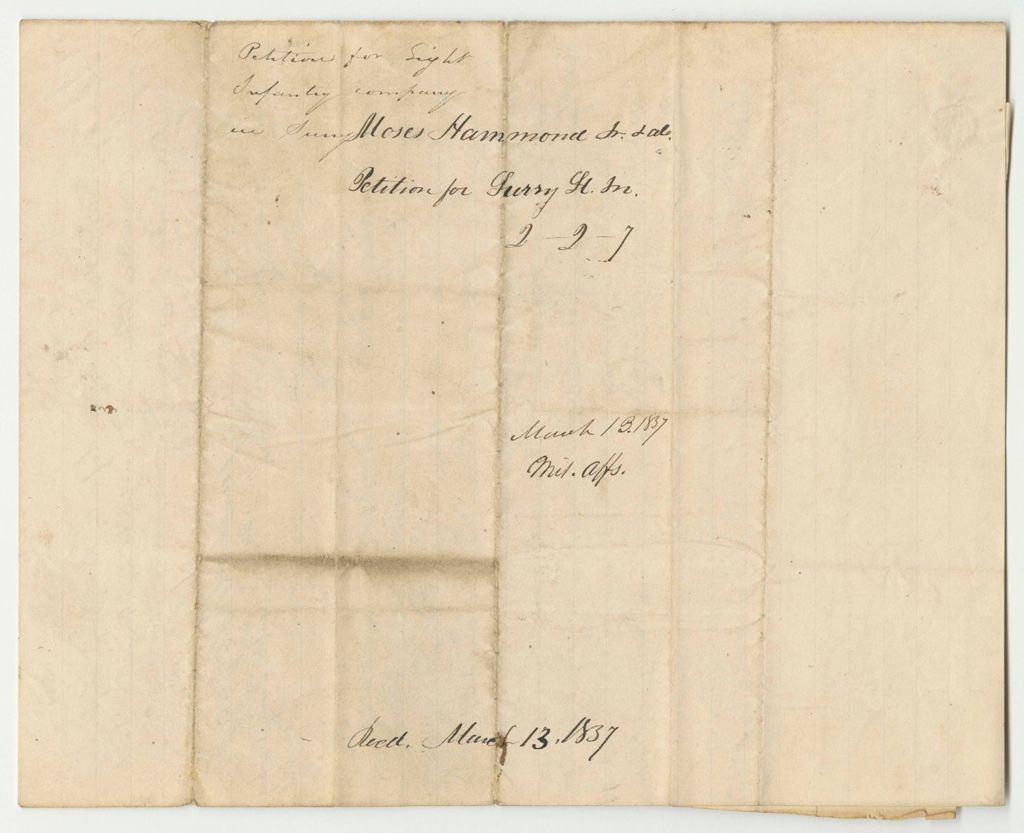 Petition for Light
Infantry company
in Surry
Moses Hammond Jr. & als.
Petition for Surry Lt. In.
2-2-7
March 13. 1837
Mil. Affs.
Recd. March 13. 1837